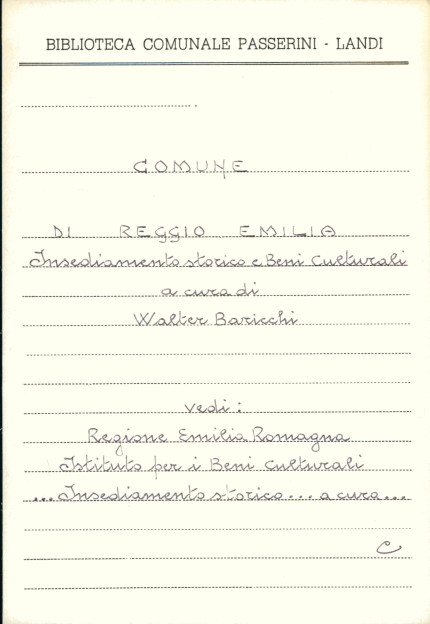 BIBLIOTECA COMUNALE PASSERINI - LANDI
COMUNE
DI REGGIO EMILIA
Insediamento storico e Beni Culturali
a cura di
Walter Baricchi
vedi:
Regione Emilia Romagna
Istituto per i Beni Culturali
...Insediamento storico... a cura...
C